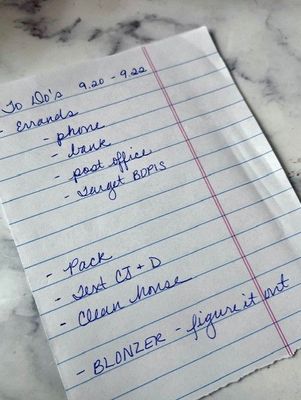 To Do's 9.20 - 9.22
- Errands
- phone
- bank
- post office
- Target BOPIS
- Pack
- Text CJ + D
- Clean house
- BLONZER - figure it out